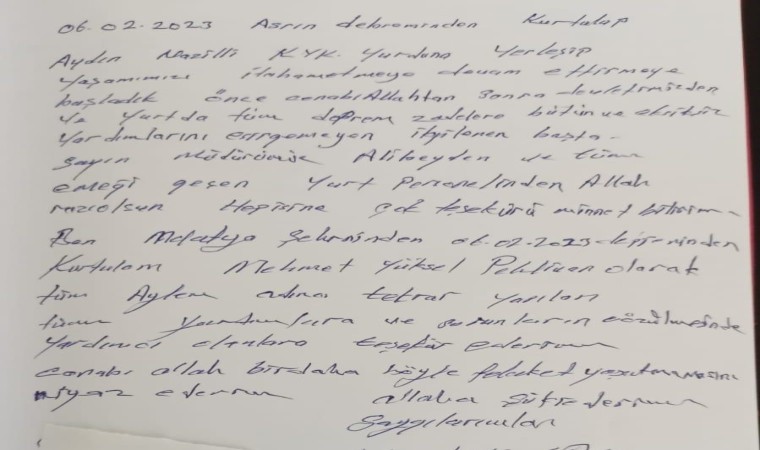 06.02.2023 Asrın debreminden Kurtulup
Aydın Nazilli KYK. Yurduna Yerleşip
yaşamımızı devam ettirmeye
başladık önce cenabı Allahtan sonra devletimizden
ve yurtda tüm deprem zedelere bütün ve eksiksiz
yardımlarını esirgemeyen ilgilenen başta
sayın Müdürümüz Alibeyden ve tüm
emeği geçen Yurt Personelinden Allah
razıolsun Hepisine çok teşekürü minnet bilirim
Ben Malatya Şehrinden 06.02.2023
Kurtulan Mehmet Yüksel Pehlivan olarak
tüm Aylem adına tekrar yapılan
tüm yardımlara ve sorunların çözülmesinde
yardımcı olanlara teşekür ederim
cenabı allah birdaha böyle felaket yaşatmamasını
niyaz ederim allaha şükrederim
Saygılarımlan